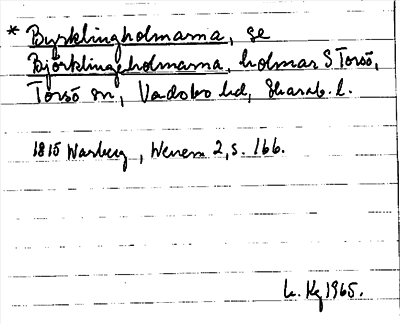 * Byrklingholmarna, se
Björklingeholmarna, holmar S Torsö,
Torsö sn, Vadsbo hd, Skarab. l.
1815 Warberg, Wenern 2, s. 166.
L. Kg 1965.